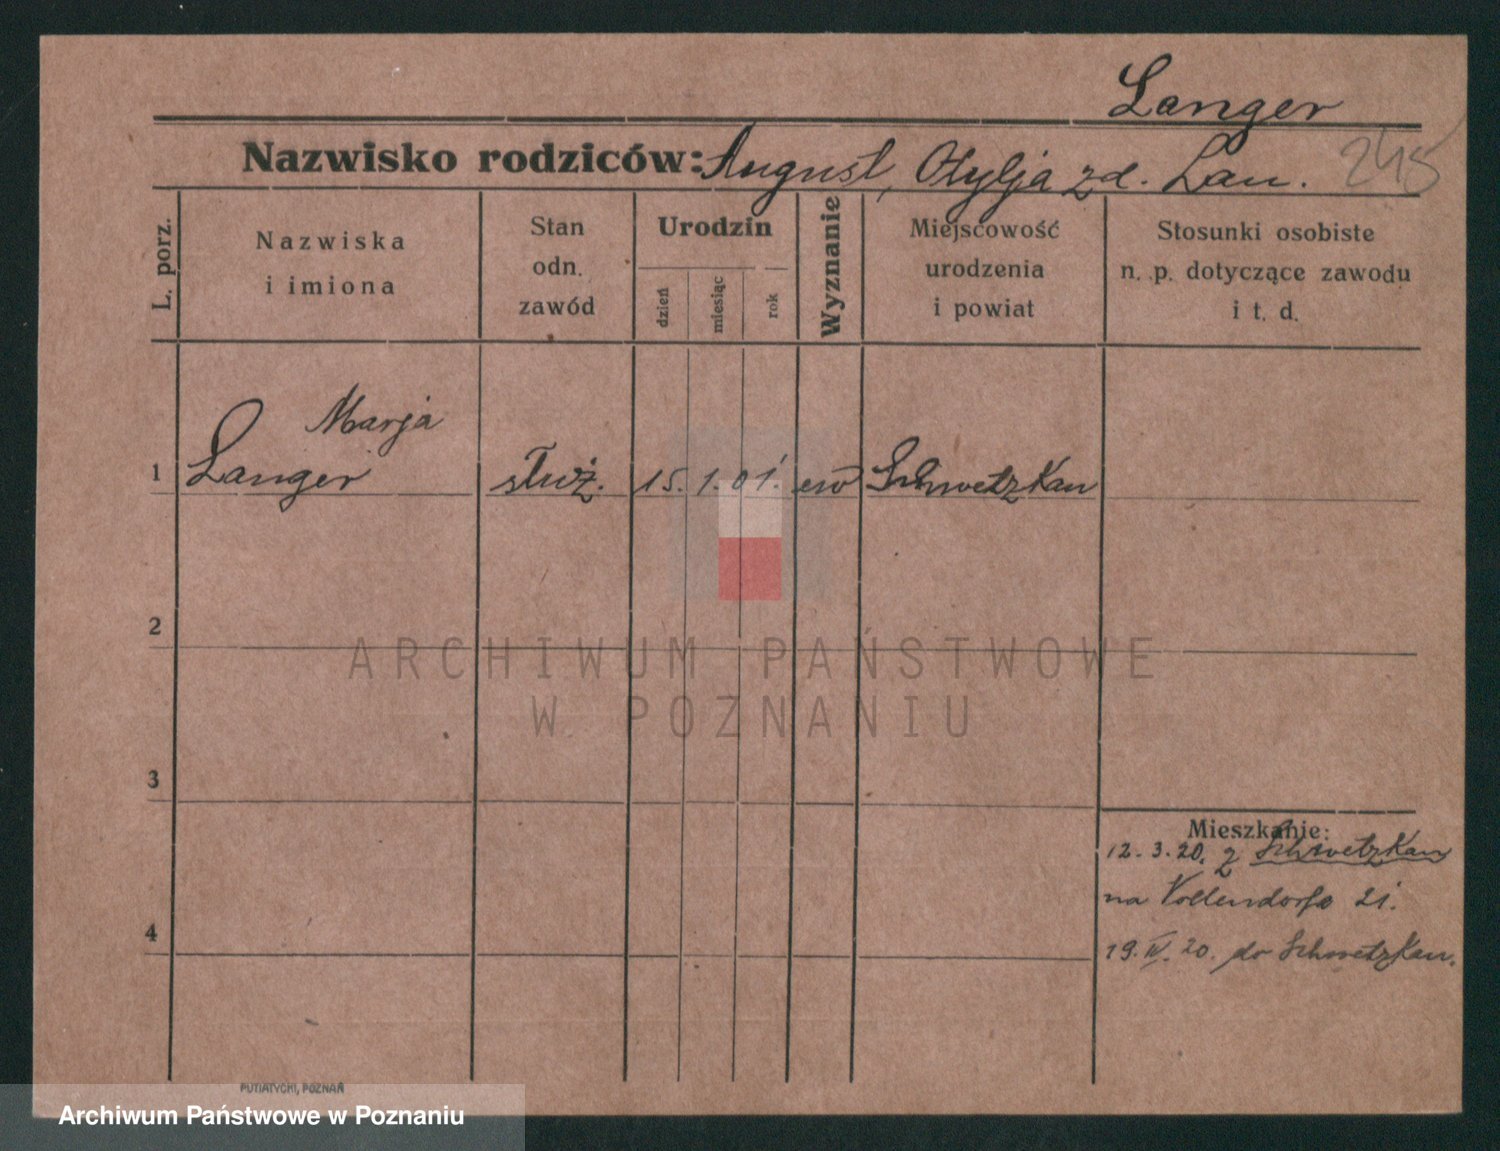 Langer
Nazwisko rodziców: August, Otylja zd. Lau.
245
L. porz.
Nazwiska
i imiona
Stan
odn.
zawód
Urodzin
dzień
miesiąc
rok
Wyznanie
Miejscowość
urodzenia
i powiat
Stosunki osobiste
n. p. dotyczące zawodu
i t. d.
Marja
1 Langer służ. 15. 1. 01. ew Schwetzkau
2
ARCHIWUM PAŃSTWOWE
W POZNANIU
3
Mieszkanie:
12. 3. 20. z Schwetzkau
na 21.
4
19. IV. 20. do Schwetzkau.
PUTIATYCKI, POZNAŃ
Archiwum Państwowe w Poznaniu